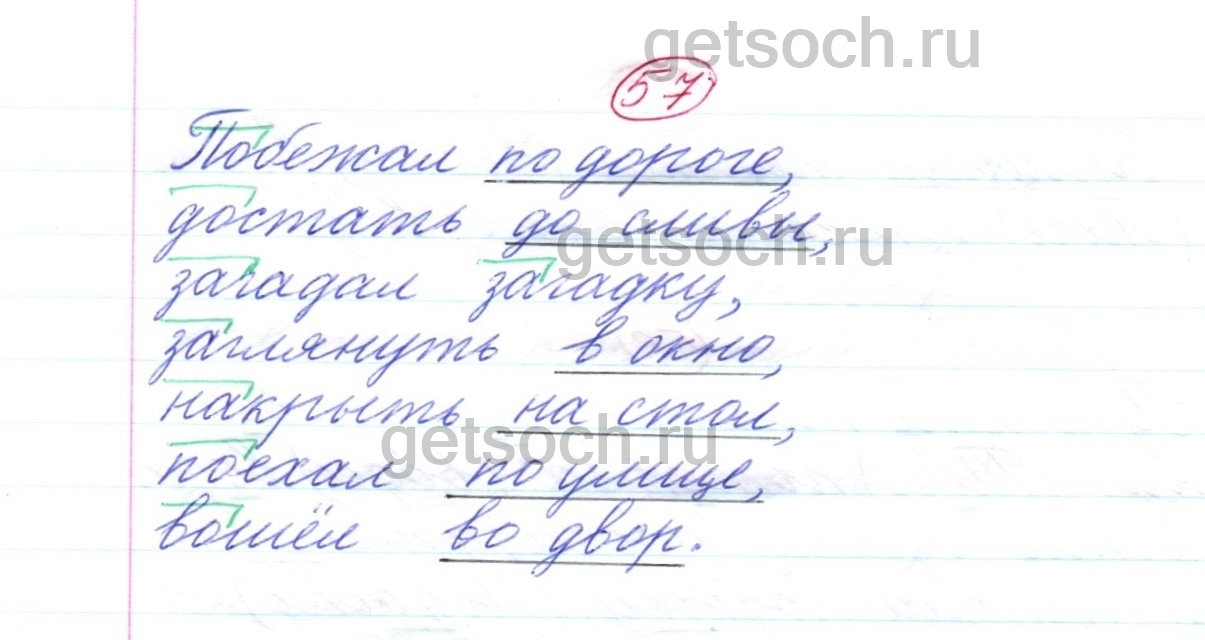 getsoch.ru
57
Побежал по дороге,
достать до сливы,
getsoch.ru
загадал загадку,
заглянуть в окно,
накрыть на стол,
getsoch.ru
поехал по улице,
вошёл во двор.